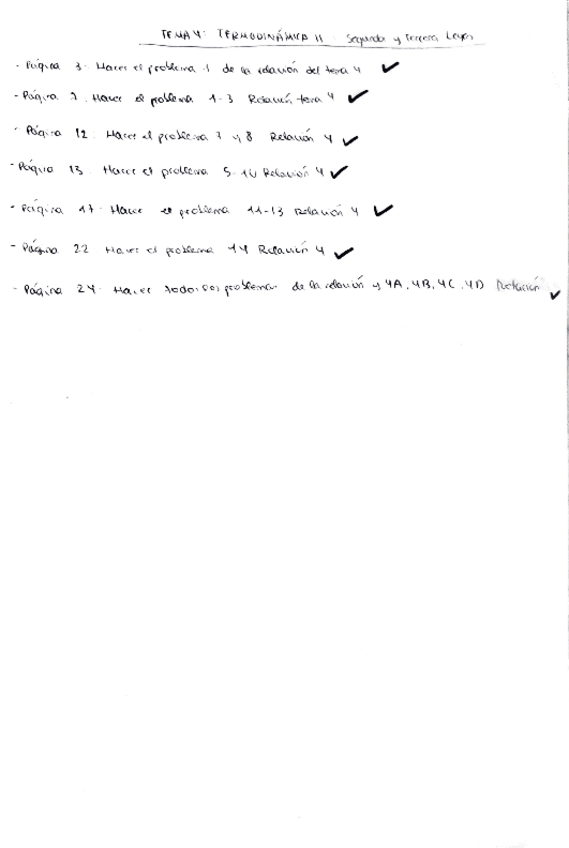 TEMA 4: TERMODINÁMICA II: Segunda y Tercera Leyes
- Página 3. Hacer el problema 1 de la relación del tema 4 ✓
- Página 7. Hacer el problema 1-3 Relación tema 4 ✓
- Página 12. Hacer el problema 7 y 8 Relación 4 ✓
- Página 13. Hacer el problema 5-10 Relación 4 ✓
- Página 17. Hacer el problema 11-13 Relación 4 ✓
- Página 22 Hacer el problema 14 Relación 4 ✓
- Página 24. Hacer todos los problemas de la relación y 4A, 4B, 4C, 4D ✓